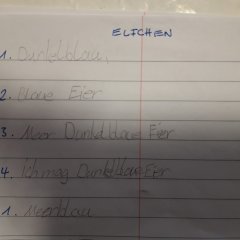 ELICHEN
1. Dunkelblau,
2. Blaue Eier
3. Meer Dunkelblaue Eier
4. Ich mag Dunkelblaue Eier
1. Meerblau